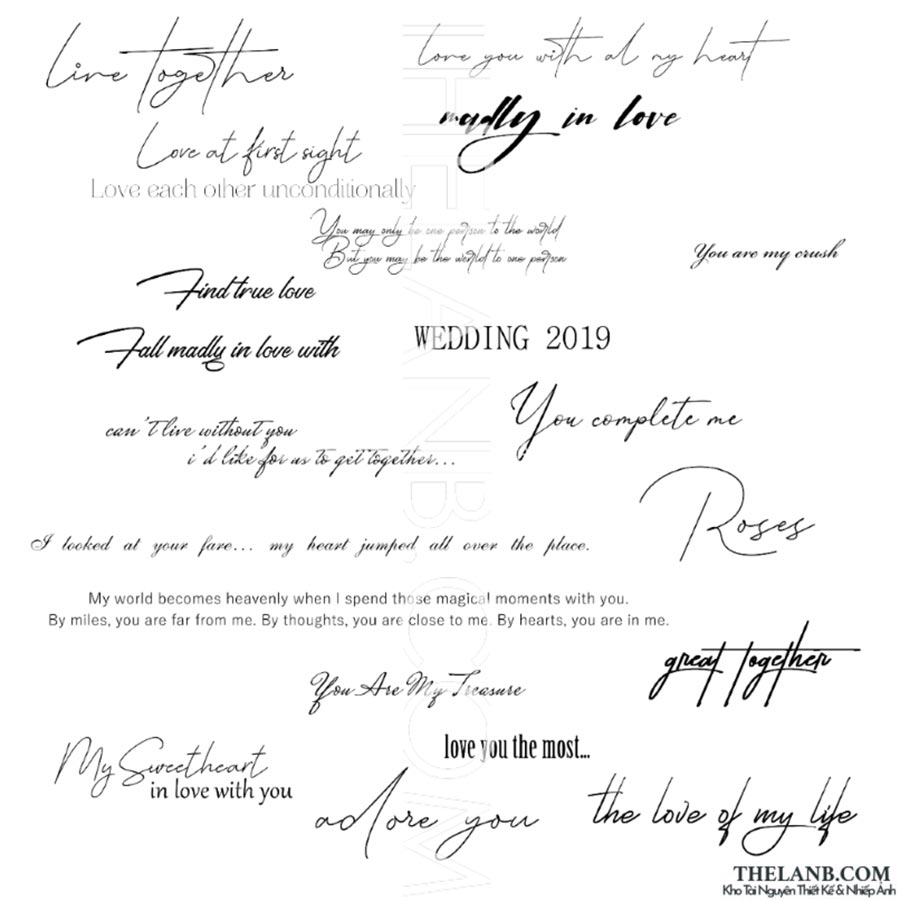 live together
love you with al my heart
madly in love
Love at first sight
Love each other unconditionally
You may only be one person to the world
But you may be the world to one person
You are my crush
Find true love
Fall madly in love with
WEDDING 2019
You complete me
can't live without you
i'd like for us to get together...
Roses
I looked at your fare... my heart jumped all over the place.
My world becomes heavenly when I spend those magical moments with you.
By miles, you are far from me. By thoughts, you are close to me. By hearts, you are in me.
great together
You Are My Treasure
love you the most...
My Sweetheart
in love with you
adore you
the love of my life
THELANB.COM
THELANB.COM
Kho Tài Nguyên Thiết Kế & Nhiếp Ảnh